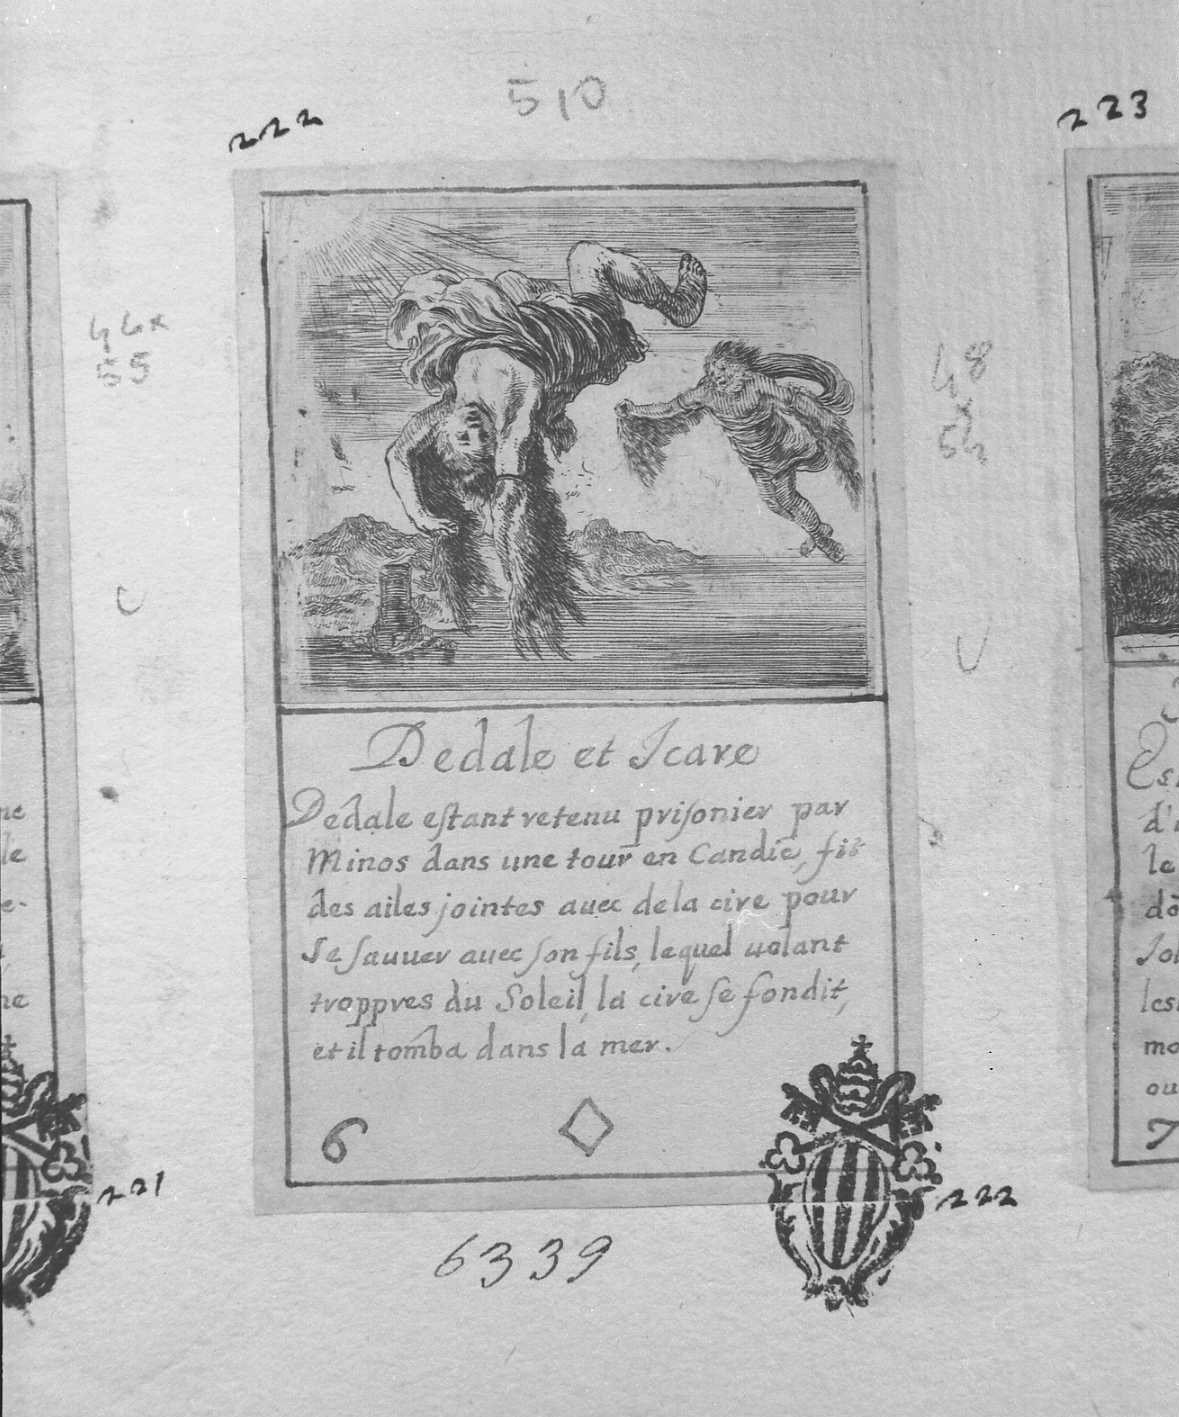 510
222
223
44x
55
48
x
54
Dedale et Icare
Dedale eſtant retenu priſonier par
Minos dans une tour en Candie, fit
des ailes jointes auec de la cire pour
Se ſauuer auec ſon fils, lequel uolant
trop pres du Soleil, la cire ſe fondit,
et il tomba dans la mer.
6
221
222
6339
ne
le
e-
ne
d'
le
lesi
mo
ou
7